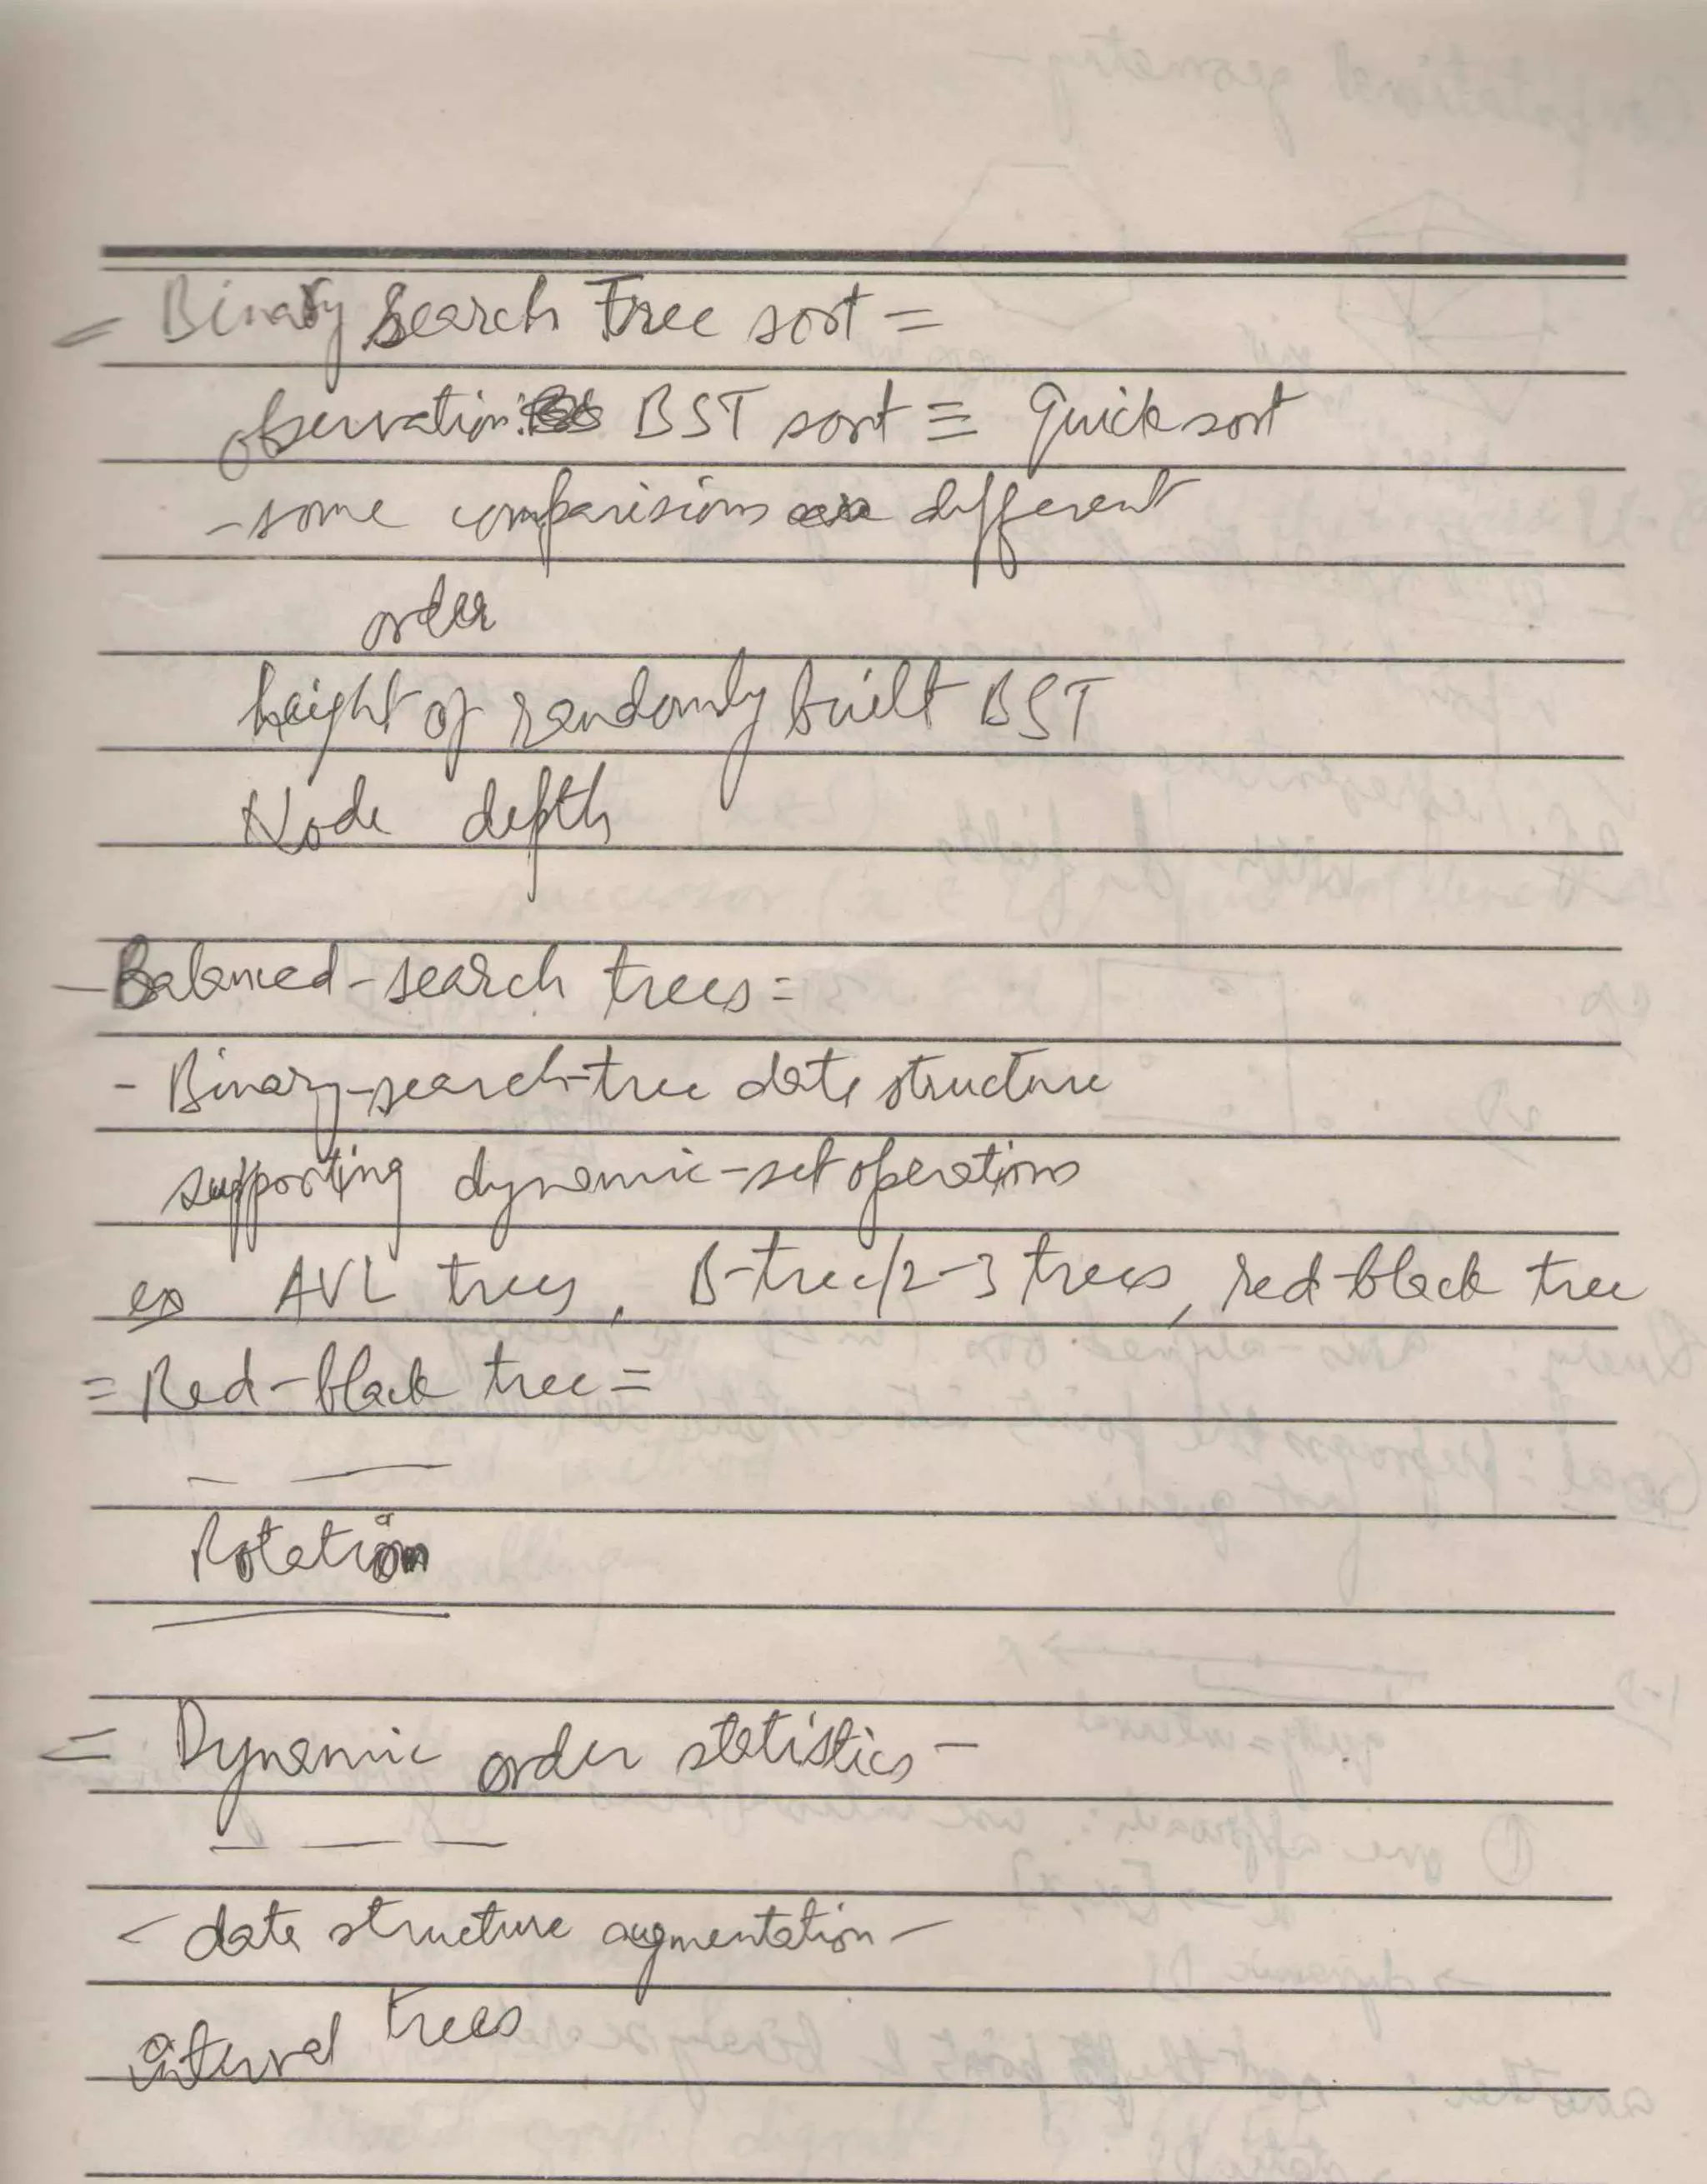 = Binary Search Tree sort =
observation: BST sort ≡ Quicksort
- some comparisions are different
order
height of randomly built BST
Node depth
- Balanced-search trees =
- Binary-search-tree data structure
supporting dynamic-set operations
ex AVL trees, B-tree/2-3 trees, red-black tree
= Red-black tree =
Rotation
= Dynamic order statistics -
- data structure augmentation -
interval trees